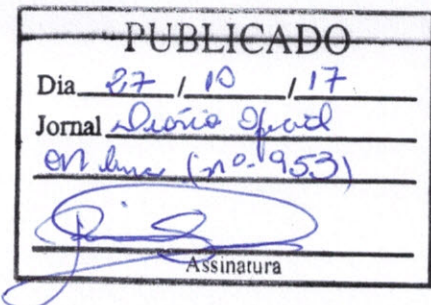 PUBLICADO
Dia 27 / 10 / 17
Jornal Diário Oficial
on line (nº 953)
Assinatura